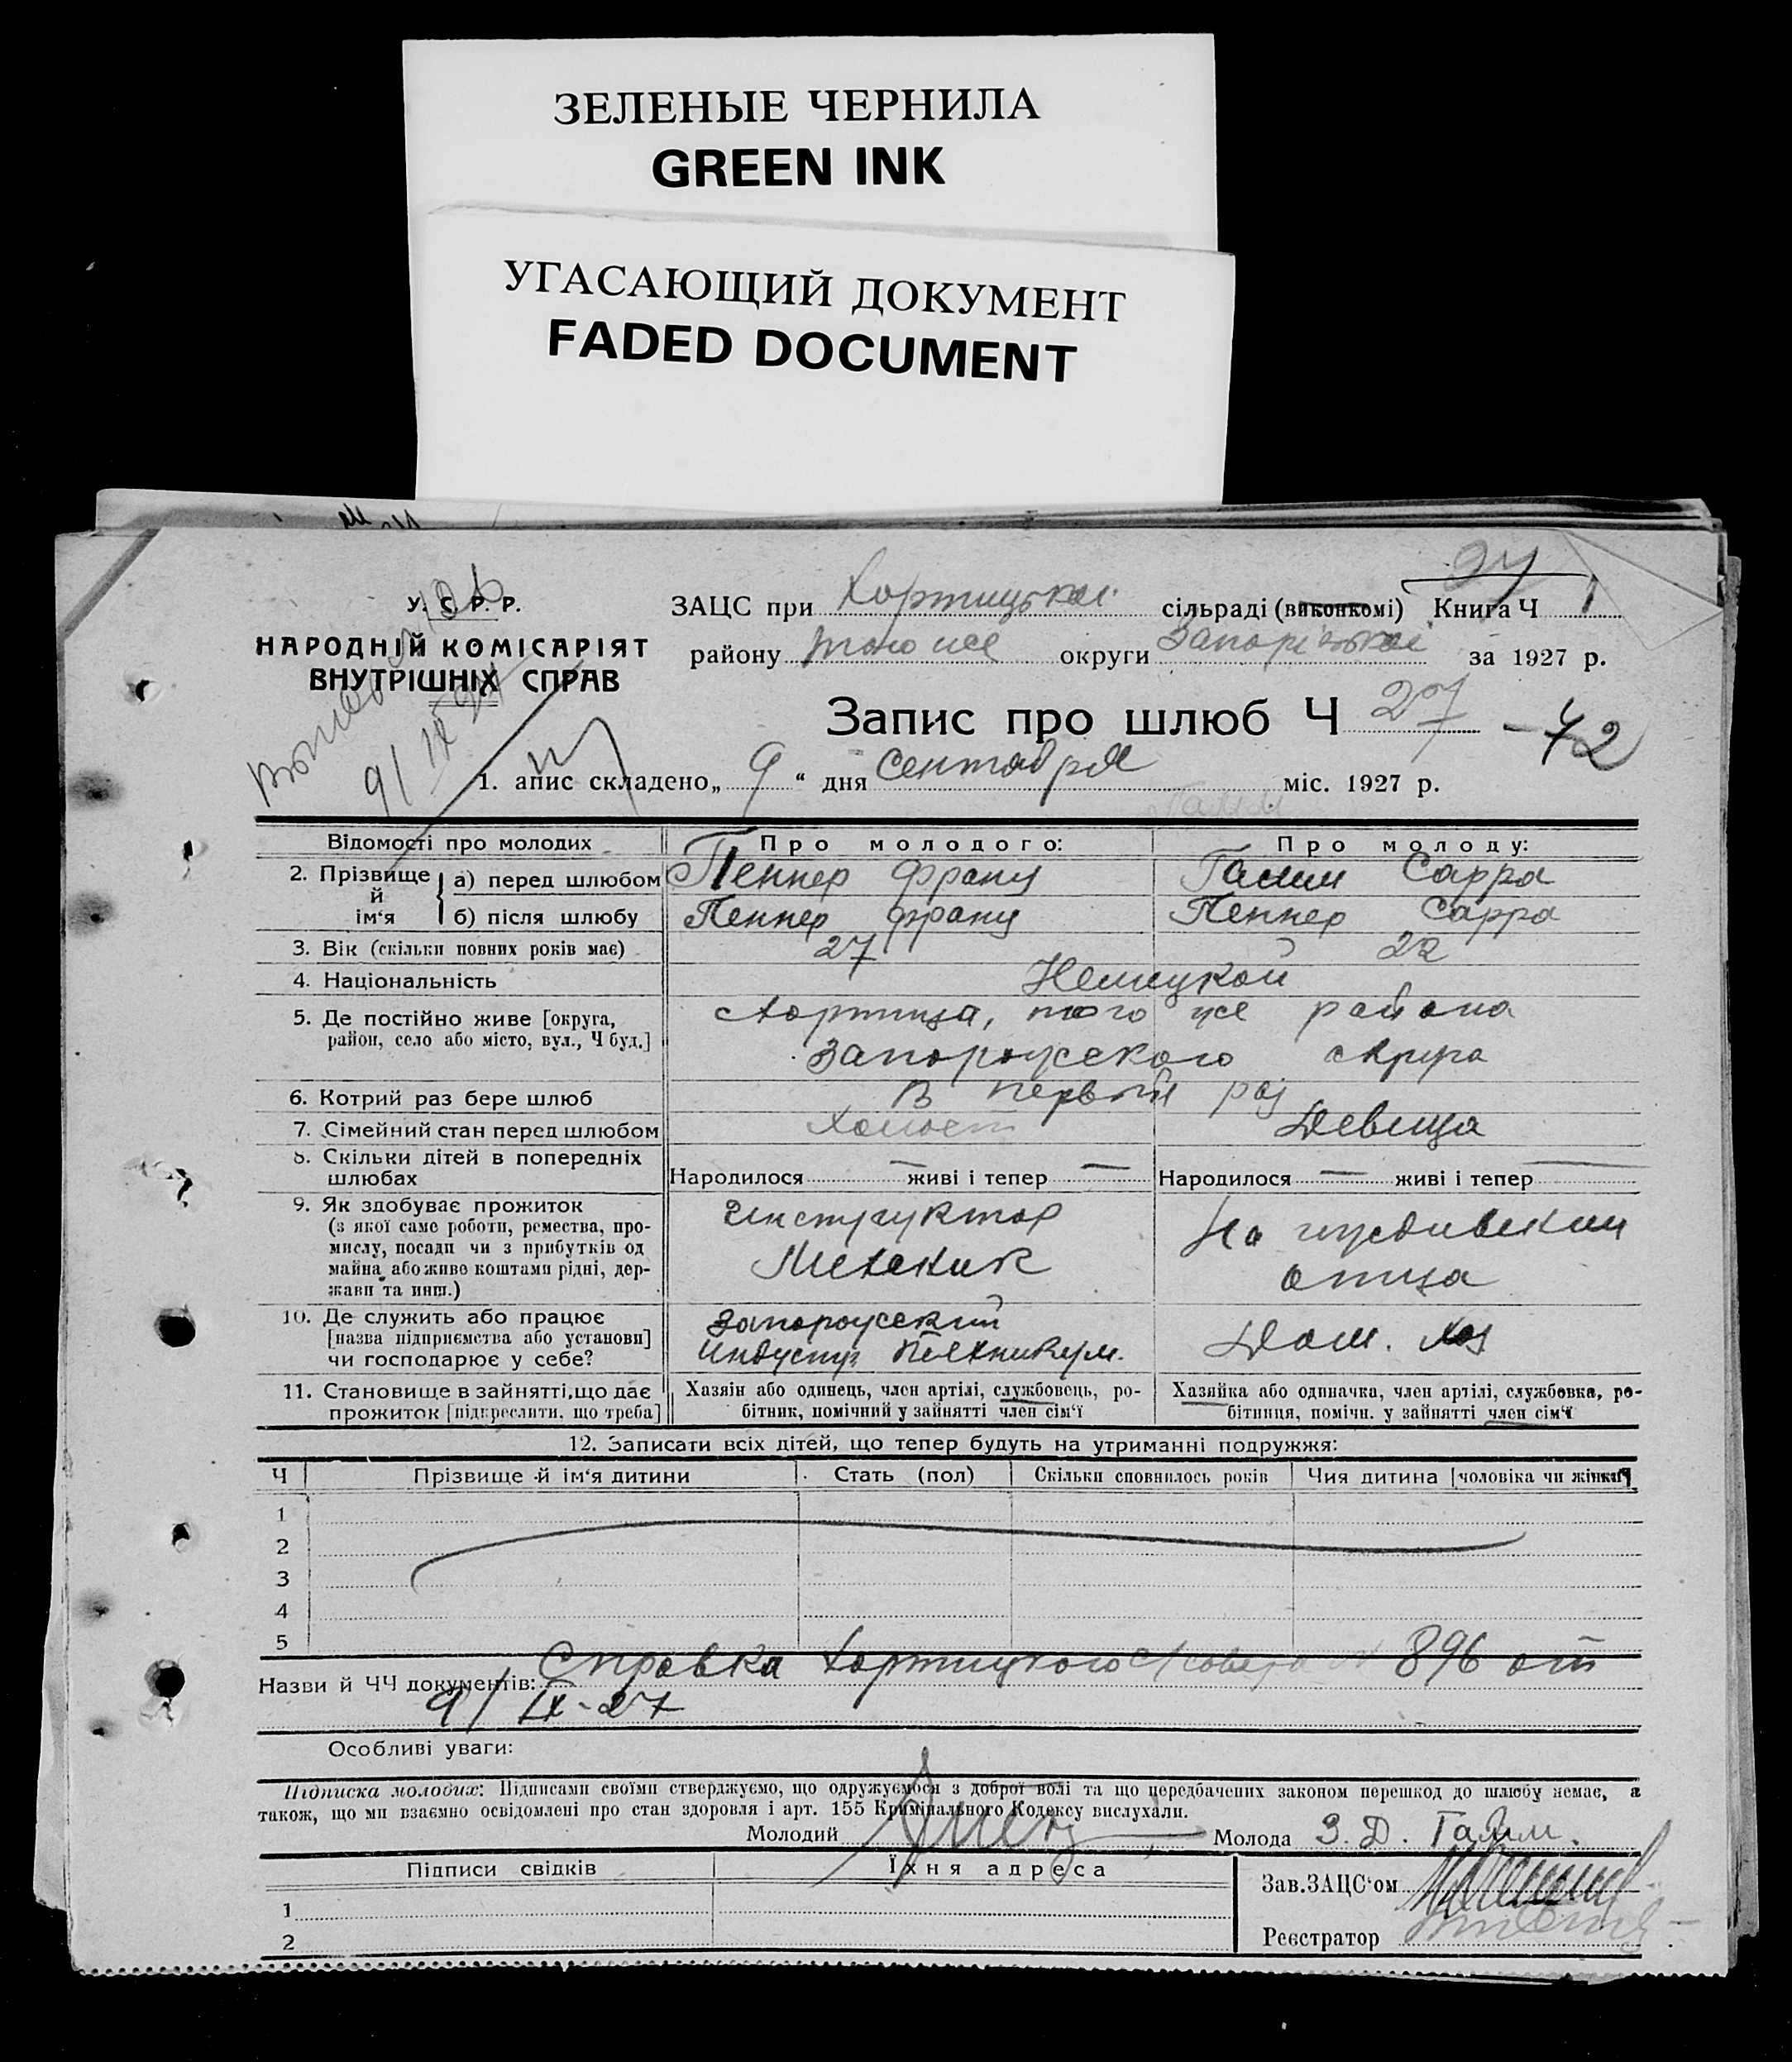 ЗЕЛЕНЫЕ ЧЕРНИЛА
GREEN INK
УГАСАЮЩИЙ ДОКУМЕНТ
FADED DOCUMENT
У. С. Р. Р.
НАРОДНІЙ КОМІСАРІЯТ
ВНУТРІШНІХ СПРАВ
9/IX 27
ЗАЦС при Хортицькой сільраді (виконкомі) Книга Ч 1
району того же округи Запоріжской за 1927 р.
Запис про шлюб Ч 27 - 42
1. апис складено „ 9 “ дня Сентября міс. 1927 р.
Відомості про молодих Про молодого: Про молоду:
2. Прізвище й ім‘я а) перед шлюбом Пеннер Франц Гамм Сарра
б) після шлюбу Пеннер Франц Пеннер Сарра
3. Вік (скільки повних років має) 27 22
4. Національність Немецкой
5. Де постійно живе [округа, Хортица, того же района
район, село або місто, вул., Ч буд.] Запорожского округа
6. Котрий раз бере шлюб В первый раз
7. Сімейний стан перед шлюбом Холост Девица
8. Скільки дітей в попередніх
шлюбах Народилося — живі і тепер — Народилося — живі і тепер —
9. Як здобуває прожиток Инструктор На иждивении
(з якої саме роботи, ремества, про-
мислу, посади чи з прибутків од Механик отца
майна або живе коштами рідні, дер-
жави та инш.)
10. Де служить або працює Запорожский
[назва підприємства або установи] индустр. Техникум. Дом. хоз
чи господарює у себе?
11. Становище в зайнятті, що дає Хазяїн або одинець, член артілі, службовець, ро- Хазяйка або одиначка, член артілі, службовка, ро-
прожиток [підкреслити, що треба] бітник, помічний у зайнятті член сім‘ї бітниця, помічн. у зайнятті член сім‘ї
12. Записати всіх дітей, що тепер будуть на утриманні подружжя:
Ч Прізвище й ім‘я дитини Стать (пол) Скільки сповнилось років Чия дитина [чоловіка чи жінки]
1
2
3
4
5
Назви й ЧЧ документів: Справка Хортицкого с/совета № 896 от
9/IX-27
Особливі уваги:
Підписка молодих: Підписами своїми стверджуємо, що одружуємося з доброї волі та що передбачених законом перешкод до шлюбу немає, а
також, що ми взаємно освідомлені про стан здоровля і арт. 155 Кримінального Кодексу вислухали.
Молодий Молода З. Д. Гамм.
Підписи свідків Їхня адреса
Зав.ЗАЦС‘ом
1
2
Реєстратор